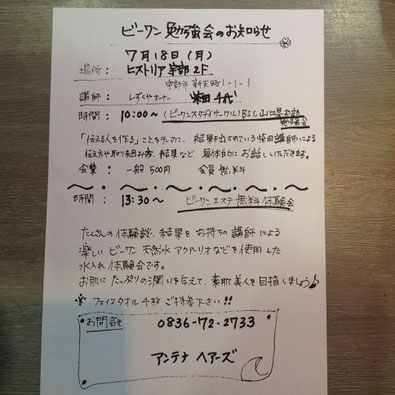 ビーワン勉強会のお知らせ
7月18日(月)
場所: ヒストリア宇部2F
宇部市新天町1-1-1
講師: しずくやオーナー 柴田千代
時間: 10:00~ (ビーワンスタディサークル)BSC山口
勉強会
「伝える人を作る」ことをテーマに、結果を出されている柴田講師による
伝え方や取り組み方、結果など 具体的にお話しいただきます。
会費: 一般500円 会員 無料
時間: 13:30~ ビーワンエステ無料体験会
たくさんの体験談、結果をお持ちの講師による
楽しいビーワン天然水アクアーリオなどを使用した
水入れ体験会です。
お肌にたっぷりの潤いを与えて、素肌美人を目指しましょう♪
※フェイスタオル 持参下さい!!
お問合せ 0836-72-2733
アンテナ ヘアーズ